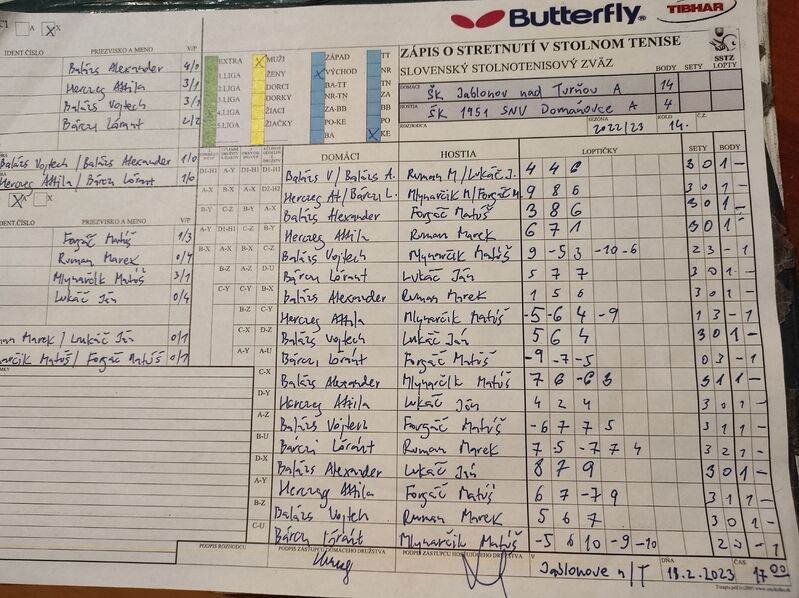 Butterfly
TIBHAR
A X X
ZÁPIS O STRETNUTÍ V STOLNOM TENISE
SLOVENSKÝ STOLNOTENISOVÝ ZVÄZ
SSTZ
IDENT.ČÍSLO PRIEZVISKO A MENO V/P
Balázs Alexander 4/0
Herczeg Attila 3/1
Balázs Vojtech 3/1
Bárczi Lóránt 2/2
Balázs Vojtech / Balázs Alexander 1/0
Herczeg Attila / Bárczi Lóránt 1/0
EXTRA X MUŽI ZÁPAD TT
I.LIGA ŽENY X VÝCHOD NR
2.LIGA DORCI BA-TT TN
3.LIGA DORKY NR-TN ZA
4.LIGA ŽIACI ZA-BB BB
5.LIGA ŽIAČKY PO-KE PO
BA X KE
BODY SETY LOPTY
DOMÁCI ŠK Jablonov nad Turňou A 14
HOSTIA ŠK 1951 SNV Domáňovce A 4
ROZHODCA SEZÓNA 2022/23 KOLO 14.
X A X
IDENT.ČÍSLO PRIEZVISKO A MENO V/P
Forgáč Matúš 1/3
Ruman Marek 0/4
Mlynarčik Matúš 3/1
Lukáč Ján 0/4
Ruman Marek / Lukáč Ján 0/1
Mlynarčik Matúš / Forgáč Matúš 0/1
DOMÁCI HOSTIA LOPTIČKY SETY BODY
D1-H1 A-Y D1-H1 D1-H1 Balázs V / Balázs A. Ruman M / Lukáč J. 4 4 6 3 0 1 -
A-X B-X A-X D2-H2 Herczeg At / Bárczi L. Mlynarčik M / Forgáč M. 9 8 6 3 0 1 -
B-Y C-Z B-Y A-X Balázs Alexander Forgáč Matúš 3 8 6 3 0 1 -
A-Y D1-H1 C-Z B-Y Herczeg Attila Ruman Marek 6 7 1 3 0 1 -
B-X A-X A-Y C-Z Balázs Vojtech Mlynarčik Matúš 9 -5 3 -10 -6 2 3 - 1
B-Z A-Z D-U Bárczi Lóránt Lukáč Ján 5 7 7 3 0 1 -
C-Y C-Y B-X Balázs Alexander Ruman Marek 1 5 6 3 0 1 -
B-Z C-Y Herczeg Attila Mlynarčik Matúš -5 -6 4 -9 1 3 - 1
C-X D-Z Balázs Vojtech Lukáč Ján 5 6 4 3 0 1 -
A-Y A-U Bárczi Lóránt Forgáč Matúš -9 -7 -5 0 3 - 1
C-X Balázs Alexander Mlynarčik Matúš 7 6 -6 3 3 1 1 -
D-Y Herczeg Attila Lukáč Ján 4 2 4 3 0 1 -
A-Z Balázs Vojtech Forgáč Matúš -6 7 7 5 3 1 1 -
B-U Bárczi Lóránt Ruman Marek 7 -5 -7 7 4 3 2 1 -
D-X Balázs Alexander Lukáč Ján 8 7 9 3 0 1 -
A-Y Herczeg Attila Forgáč Matúš 6 7 -7 9 3 1 1 -
B-Z Balázs Vojtech Ruman Marek 5 6 7 3 0 1 -
C-U Bárczi Lóránt Mlynarčik Matúš -5 6 10 -9 -10 2 3 - 1
PODPIS ROZHODCU PODPIS ZÁSTUPCU DOMÁCEHO DRUŽSTVA PODPIS ZÁSTUPCU HOSŤUJÚCEHO DRUŽSTVA V Jablonove n/T DŇA 18.2.2023 ČAS 17 00